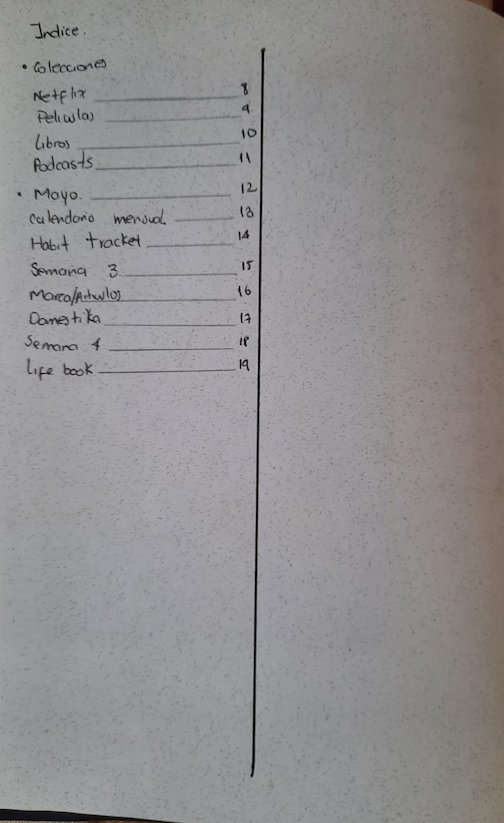 Indice.
• Colecciones
Netflix 8
Peliculas 9
Libros 10
Podcasts 11
• Mayo. 12
Calendario mensual 13
Habit tracket 14
Semana 3 15
Marca/Articulos 16
Domestika 17
Semana 4 18
Life book 19